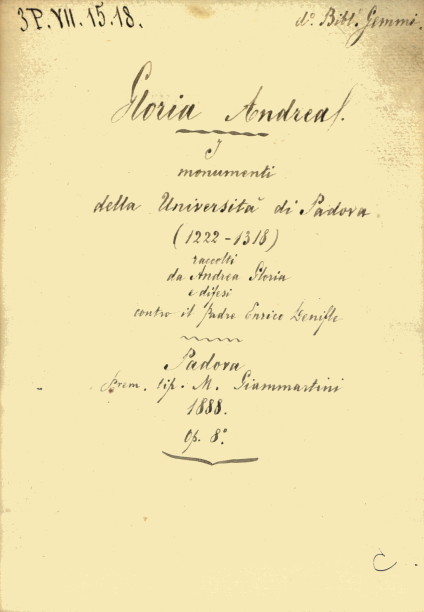 3P.VII.15.18.
d.º Bibl. Gemmi.
Gloria Andrea.
I
monumenti
della Università di Padova
(1222-1318)
raccolti
da Andrea Gloria
e difesi
contro il Padre Enrico Denifle
Padova
Prem. tip. M. Giammartini
1888.
Op. 8º
C.